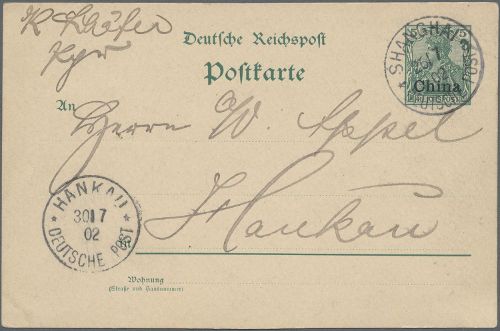 K Schäfer
Deutsche Reichspost
Postkarte
SHANGHAI
DEUTSCHE POST
02
China
An
Herrn C/O. Appel
Hankau
* HANKAU *
30 7
02
DEUTSCHE POST
Wohnung
(Straße und Hausnummer)